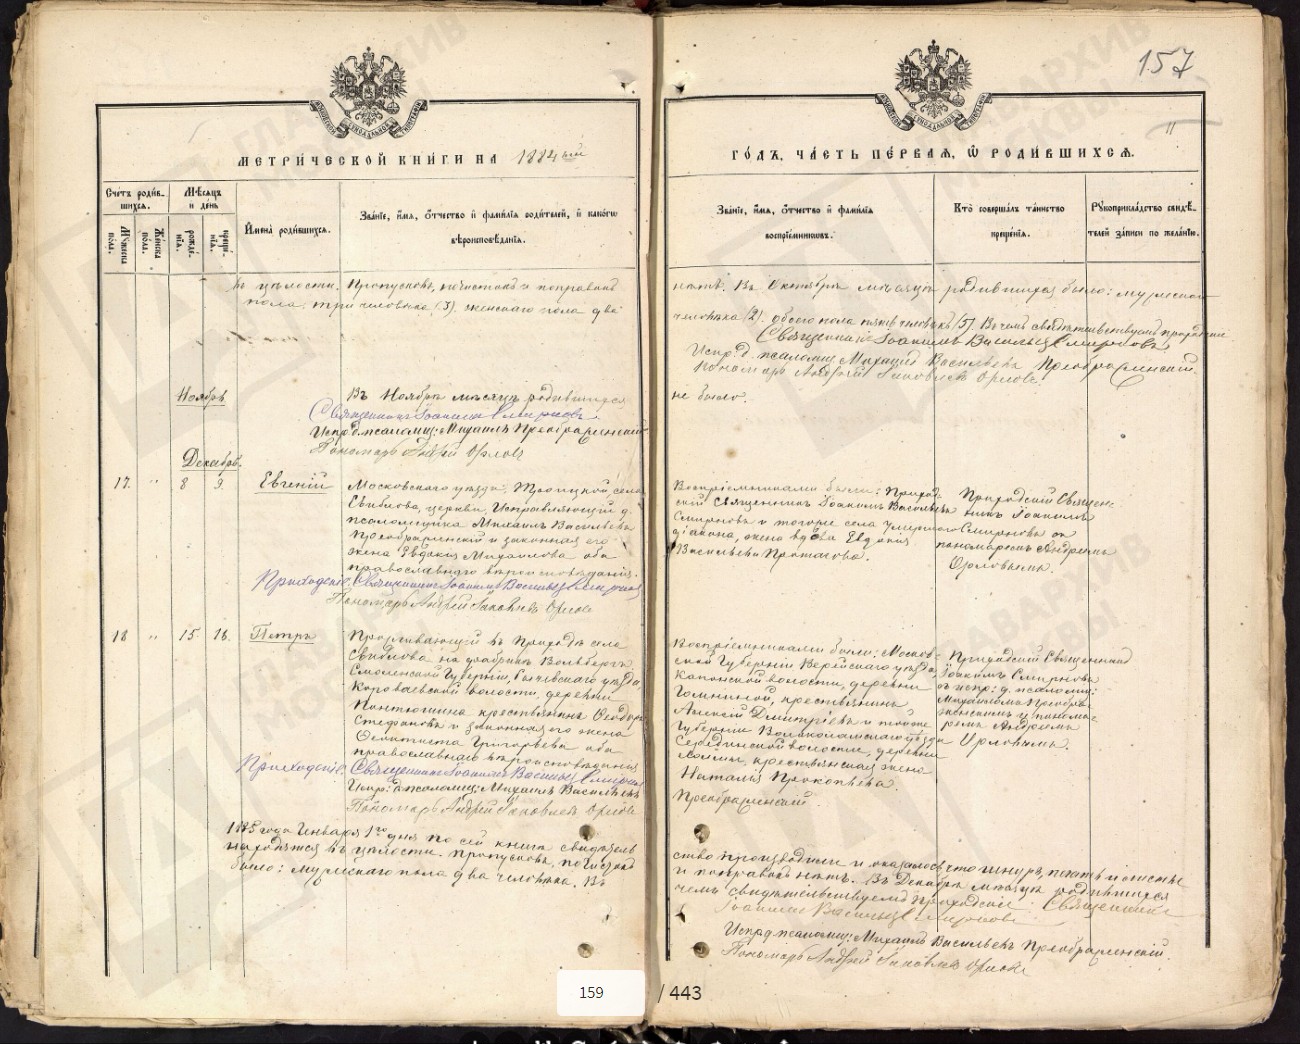 157
МЕТРИ́ЧЕСКОЙ КНИ́ГИ НА 1884ый
ГО́ДЪ, ЧА́СТЬ ПЕ́РВАЯ, Ѡ҆ РОДИ́ВШИХСЯ.
Сче́тъ роди́в-
шихся.
Мѣ́сяцъ
и де́нь
Му́жеска
по́ла.
Же́нска
по́ла.
рожде́-
нїя.
креще́-
нїя.
И҆мена̀ роди́вшихся.
Зва́нїе, и҆́мя, ѻ҆́тчество и҆ фами́лїя роди́телей, и҆ како́гѡ
вѣроисповѣ́данїя.
Зва́нїе, и҆́мя, ѻ҆́тчество и҆ фами́лїя
воспрїе́мниковъ.
Кто̀ соверша́лъ та́инство
креще́нїя.
Рꙋкоприкла́дство свидѣ́-
телей за́писи по жела́нїю.
въ цѣлости. Пропусковъ, почистокъ и поправокъ
пола: три человѣка (3), женскаго пола два
нѣтъ. Въ Октябрѣ мѣсяцѣ родившихся было: мужеска
человѣка (2), обоего пола пять человѣкъ (5). Въ чемъ свидѣтельствуемъ приходскій
Священникъ Іоаннъ Васильевъ Смирновъ
Испр: д. псаломщ: Михаилъ Васильевъ Преображенскій.
Пономарь Андрей Яковлевъ Орловъ
Ноябрь
Въ Ноябрѣ мѣсяцѣ родившихся
не было.
Священникъ Іоаннъ Смирновъ.
Испр: д. псаломщ: Михаилъ Преображенскій
Пономарь Андрей Орловъ
Декабрь.
17. " 8 9. Евгеній
Московскаго уѣзда, Троицкой, села
Свиблова, церкви, Исправляющій д.
псаломщика Михаилъ Васильевъ
Преображенскій и законная его
жена Евдокія Михаилова оба
православнаго вѣроисповѣданія.
Приходскій Священникъ Іоаннъ Васильевъ Смирновъ
Пономарь Андрей Яковлевъ Орловъ
Воспріемниками были: Приход-
скій Священникъ Іоаннъ Васильевъ
Смирновъ и тогоже села умершаго
діакона, жена вдова Евдокія
Васильева
Приходскій Священ-
никъ Іоаннъ
Смирновъ съ
пономаремъ Андреемъ
Орловымъ.
18 " 15. 16. Петръ
Проживающій въ Приходѣ села
Свиблова на фабрикѣ
Смоленской Губерніи, Сычевскаго уѣзда,
волости, деревни
крестьянинъ Ѳеодоръ
Стефановъ и законная его жена
Григорьева оба
православнаго вѣроисповѣданія
Приходскій Священникъ Іоаннъ Васильевъ Смирновъ
Испр: д. псаломщ: Михаилъ Васильевъ
Пономарь Андрей Яковлевъ Орловъ
Воспріемниками были: Москов-
ской Губерніи Верейскаго уѣзда,
волости, деревни
крестьянинъ
Алексій Дмитріевъ и тойже
Губерніи Волоколамскаго уѣзда
Серединской волости, деревни
крестьянская жена
Наталія Прокопьева.
Преображенскій.
Приходскій Священникъ
Іоаннъ Смирновъ
съ испр: д. псаломщ:
Михаиломъ Преобра-
женскимъ и понома-
ремъ Андреемъ
Орловымъ.
1885 года Января 1го дня по сей книгѣ свидѣтель
находятся въ цѣлости. Пропусковъ, почистокъ
было: мужескаго пола два человѣка. Въ
ство производили и оказалось что шнуръ, печать и листы
и поправокъ нѣтъ. Въ Декабрѣ мѣсяцѣ родившихся
чемъ свидѣтельствуемъ Приходскій Священникъ
Іоаннъ Васильевъ Смирновъ
Испр: д. псаломщ: Михаилъ Васильевъ Преображенскій.
Пономарь Андрей Яковлевъ Орловъ
ГЛАВАРХИВ
МОСКВЫ
159 / 443